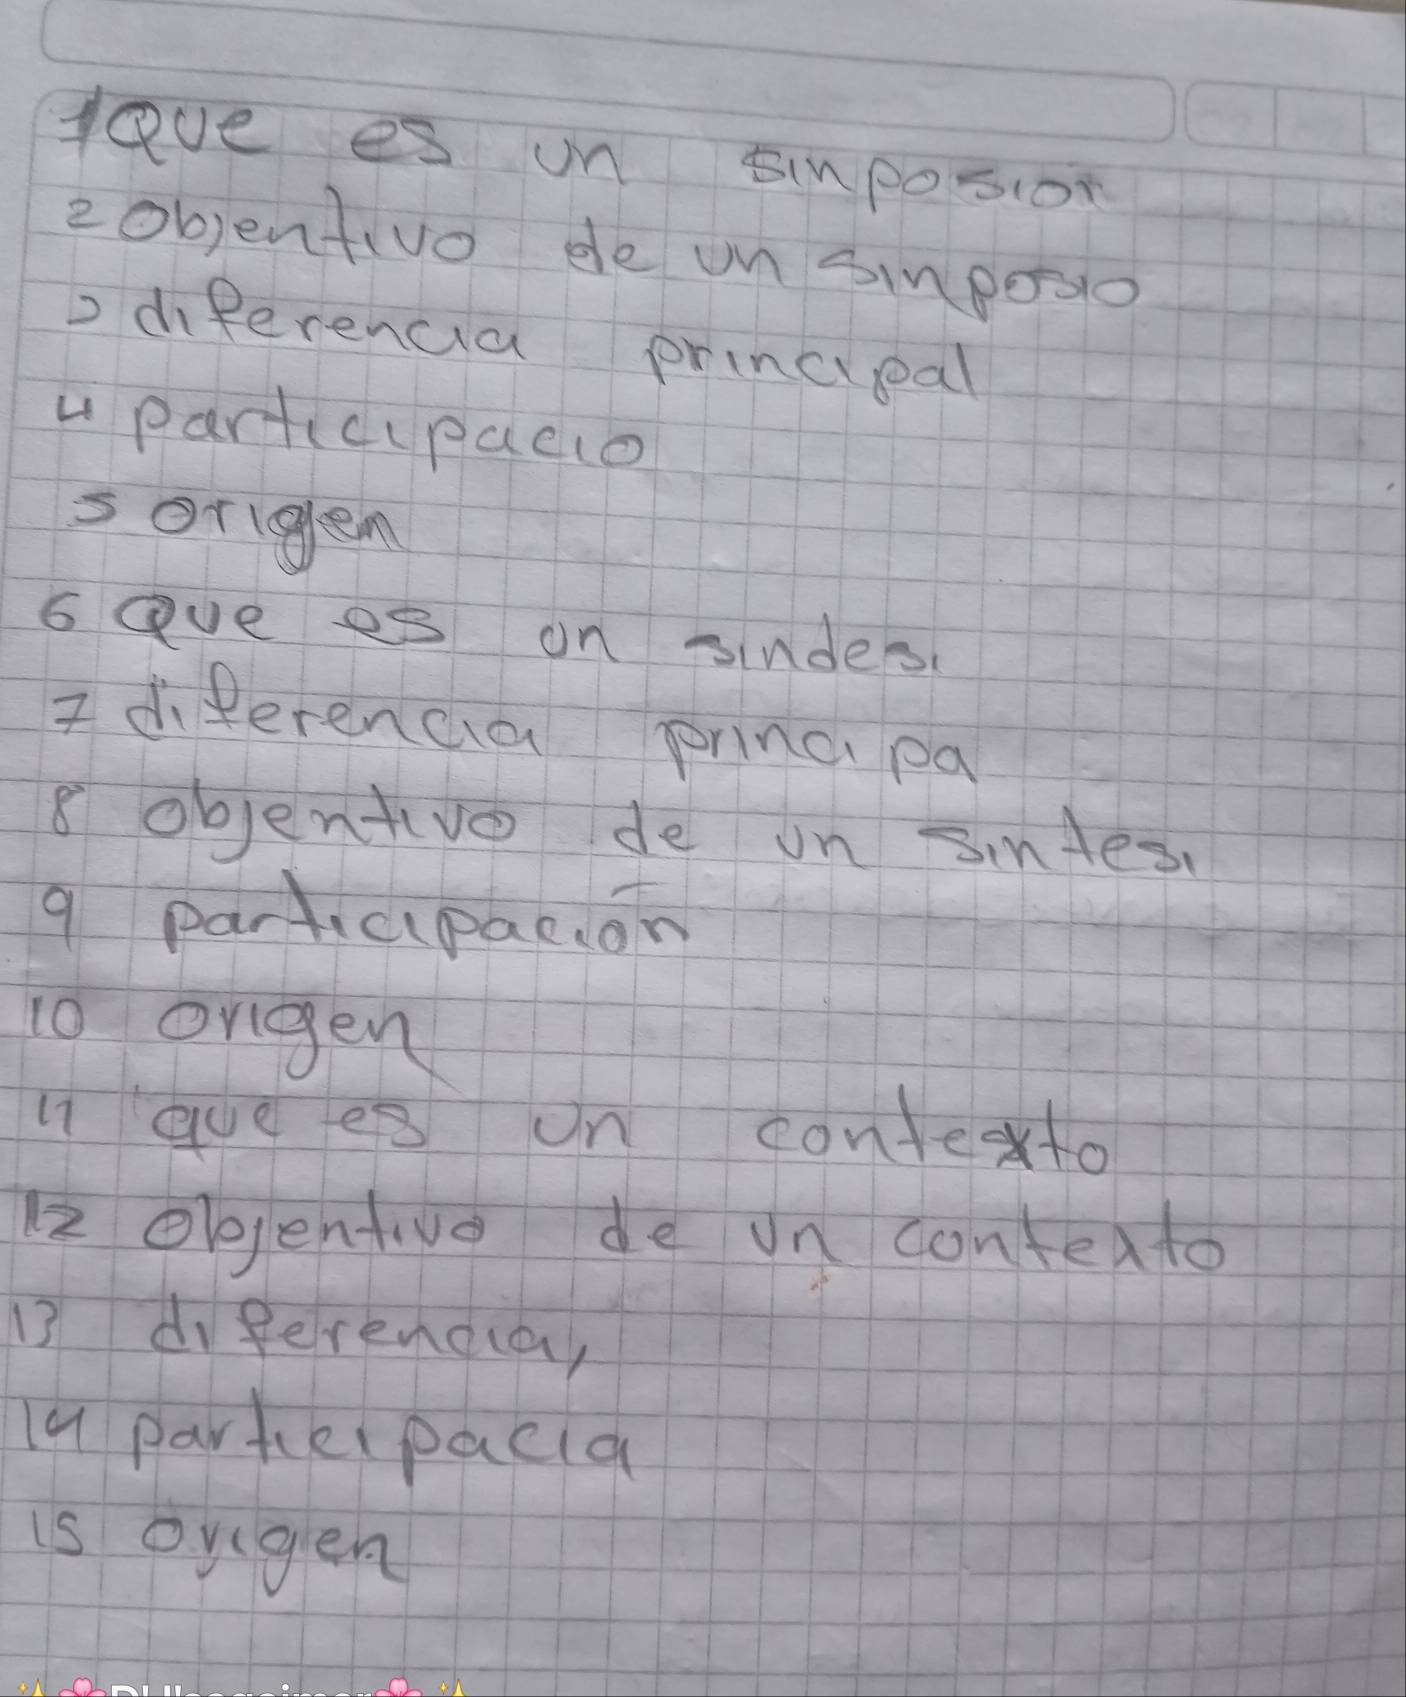 1 Que es un sinposion
2 Objentivo de un sinposio
3 diferencia principal
4 participacio
5 origen
6 Que es un sindesi
7 diferencia principa
8 objentivo de un sintesi
9 participación
10 origen
11 que es un contexto
12 objentivo de un contexto
13 diferencia,
14 participacia
15 origen